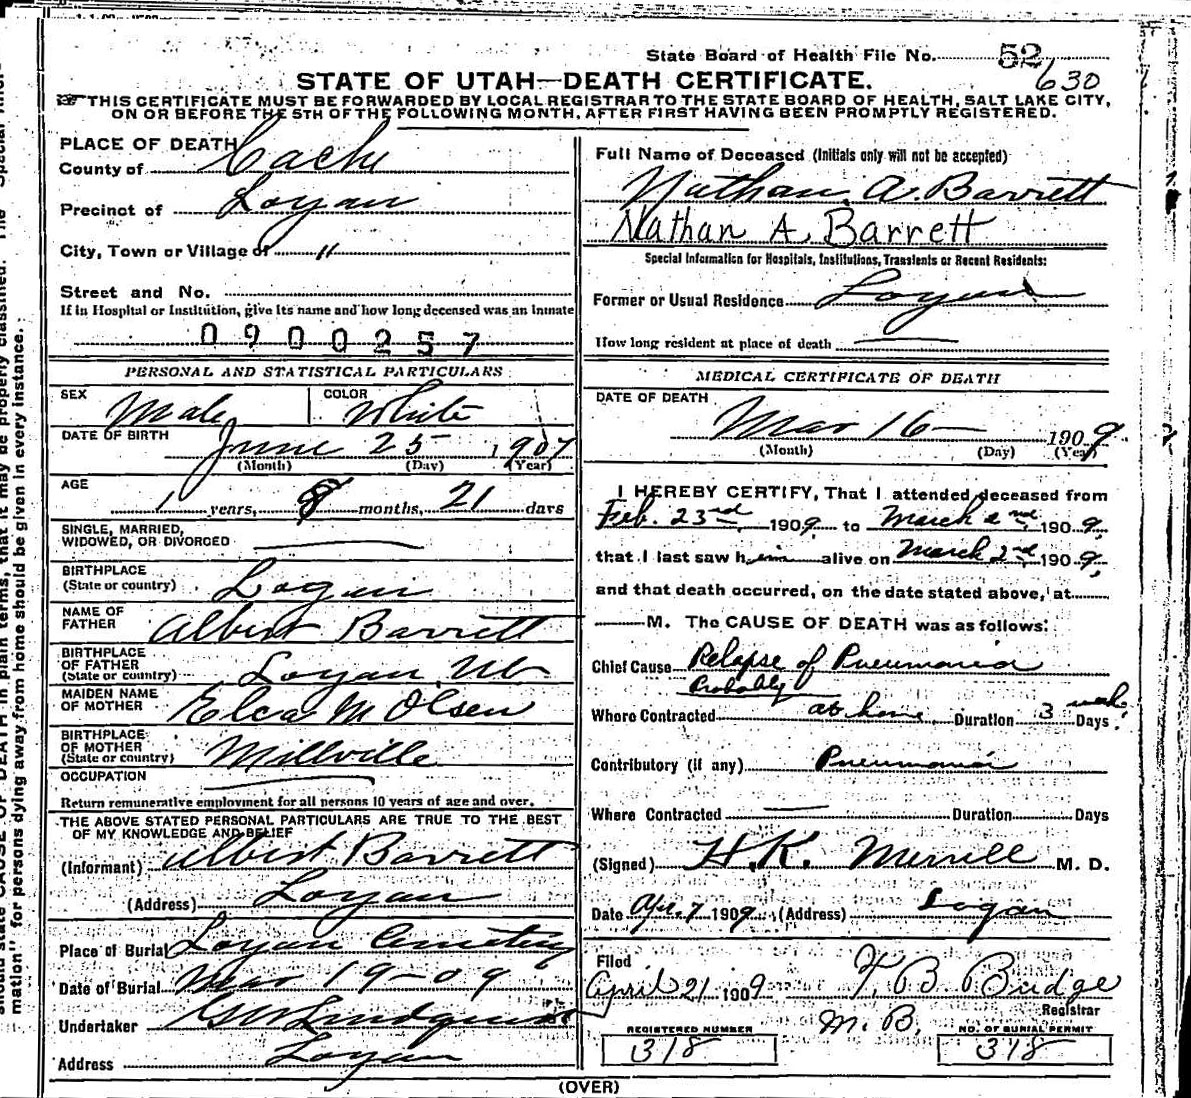 State Board of Health File No. 52
630
STATE OF UTAH—DEATH CERTIFICATE.
THIS CERTIFICATE MUST BE FORWARDED BY LOCAL REGISTRAR TO THE STATE BOARD OF HEALTH, SALT LAKE CITY,
ON OR BEFORE THE 5TH OF THE FOLLOWING MONTH, AFTER FIRST HAVING BEEN PROMPTLY REGISTERED.
PLACE OF DEATH
County of Cache
Precinct of Logan
City, Town or Village of "
Street and No.
If in Hospital or Institution, give its name and how long deceased was an inmate
0900257
PERSONAL AND STATISTICAL PARTICULARS
SEX Male COLOR White
DATE OF BIRTH June 25, 1907
(Month) (Day) (Year)
AGE
1 years, 8 months, 21 days
SINGLE, MARRIED,
WIDOWED, OR DIVORCED
BIRTHPLACE
(State or country) Logan
NAME OF
FATHER Albert Barrett
BIRTHPLACE
OF FATHER
(State or country) Logan, Ut
MAIDEN NAME
OF MOTHER Elca M Olsen
BIRTHPLACE
OF MOTHER
(State or country) Millville
OCCUPATION
Return remunerative employment for all persons 10 years of age and over.
THE ABOVE STATED PERSONAL PARTICULARS ARE TRUE TO THE BEST
OF MY KNOWLEDGE AND BELIEF
(Informant) Albert Barrett
(Address) Logan
Place of Burial Logan Cemetery
Date of Burial Mar 19-09
Undertaker GW Lindquist
Address Logan
Full Name of Deceased (Initials only will not be accepted)
Nathan. A. Barrett
Nathan A. Barrett
Special Information for Hospitals, Institutions, Transients or Recent Residents:
Former or Usual Residence Logan
How long resident at place of death
MEDICAL CERTIFICATE OF DEATH
DATE OF DEATH
Mar 16 1909
(Month) (Day) (Year)
I HEREBY CERTIFY, That I attended deceased from
Feb. 23rd, 1909, to March 2nd, 1909,
that I last saw him alive on March 2nd, 1909,
and that death occurred, on the date stated above, at
M. The CAUSE OF DEATH was as follows:
Chief Cause Relapse of Pneumonia
Probably
Where Contracted at home, Duration 3 weeks Days.
Contributory (if any) Pneumonia
Where Contracted Duration Days
(Signed) H.K. Merrill M. D.
Date Apr. 7 1909 (Address) Logan
Filed
April 21 1909 F. B. Budge
Registrar
M. B.
REGISTERED NUMBER NO. OF BURIAL PERMIT
318 318
(OVER)
should state CAUSE OF DEATH in plain terms, that it may be properly classified. The "Special Infor-
mation" for persons dying away from home should be given in every instance.